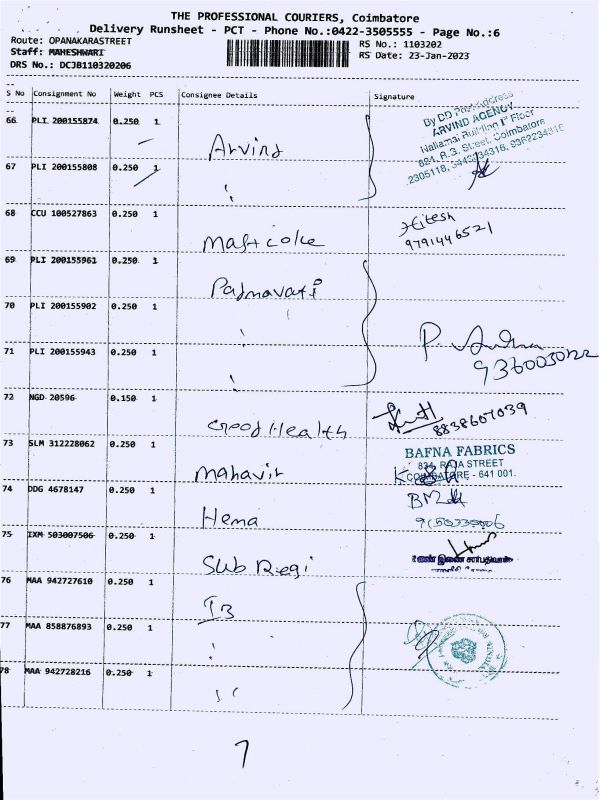 THE PROFESSIONAL COURIERS, Coimbatore
Delivery Runsheet - PCT - Phone No.:0422-3505555 - Page No.:6
Route: OPANAKARASTREET
RS No.: 1103202
Staff: MAHESHWARI
RS Date: 23-Jan-2023
DRS No.: DCJB110320206
S No Consignment No Weight PCS Consignee Details Signature
66 PLI 200155874 0.250 1 Arvind
By DD Post Address
ARVIND AGENCY
Nallamai Building 1st Floor
824, R.S. Street, Coimbatore
67 PLI 200155808 0.250 1 "
68 CCU 100527863 0.250 1 Hitesh
9791446521
69 PLI 200155961 0.250 1 Padmavati
70 PLI 200155902 0.250 1 "
71 PLI 200155943 0.250 1 "
72 NGD 20596 0.150 1 Good Health
8838607039
73 SLM 312228062 0.250 1 Mahavir
BAFNA FABRICS
834, RAJA STREET
COIMBATORE - 641 001.
74 DDG 4678147 0.250 1 Hema
75 IXM 503007506 0.250 1 Sub Regi
76 MAA 942727610 0.250 1 IB
77 MAA 858876893 0.250 1 "
78 MAA 942728216 0.250 1 "
7